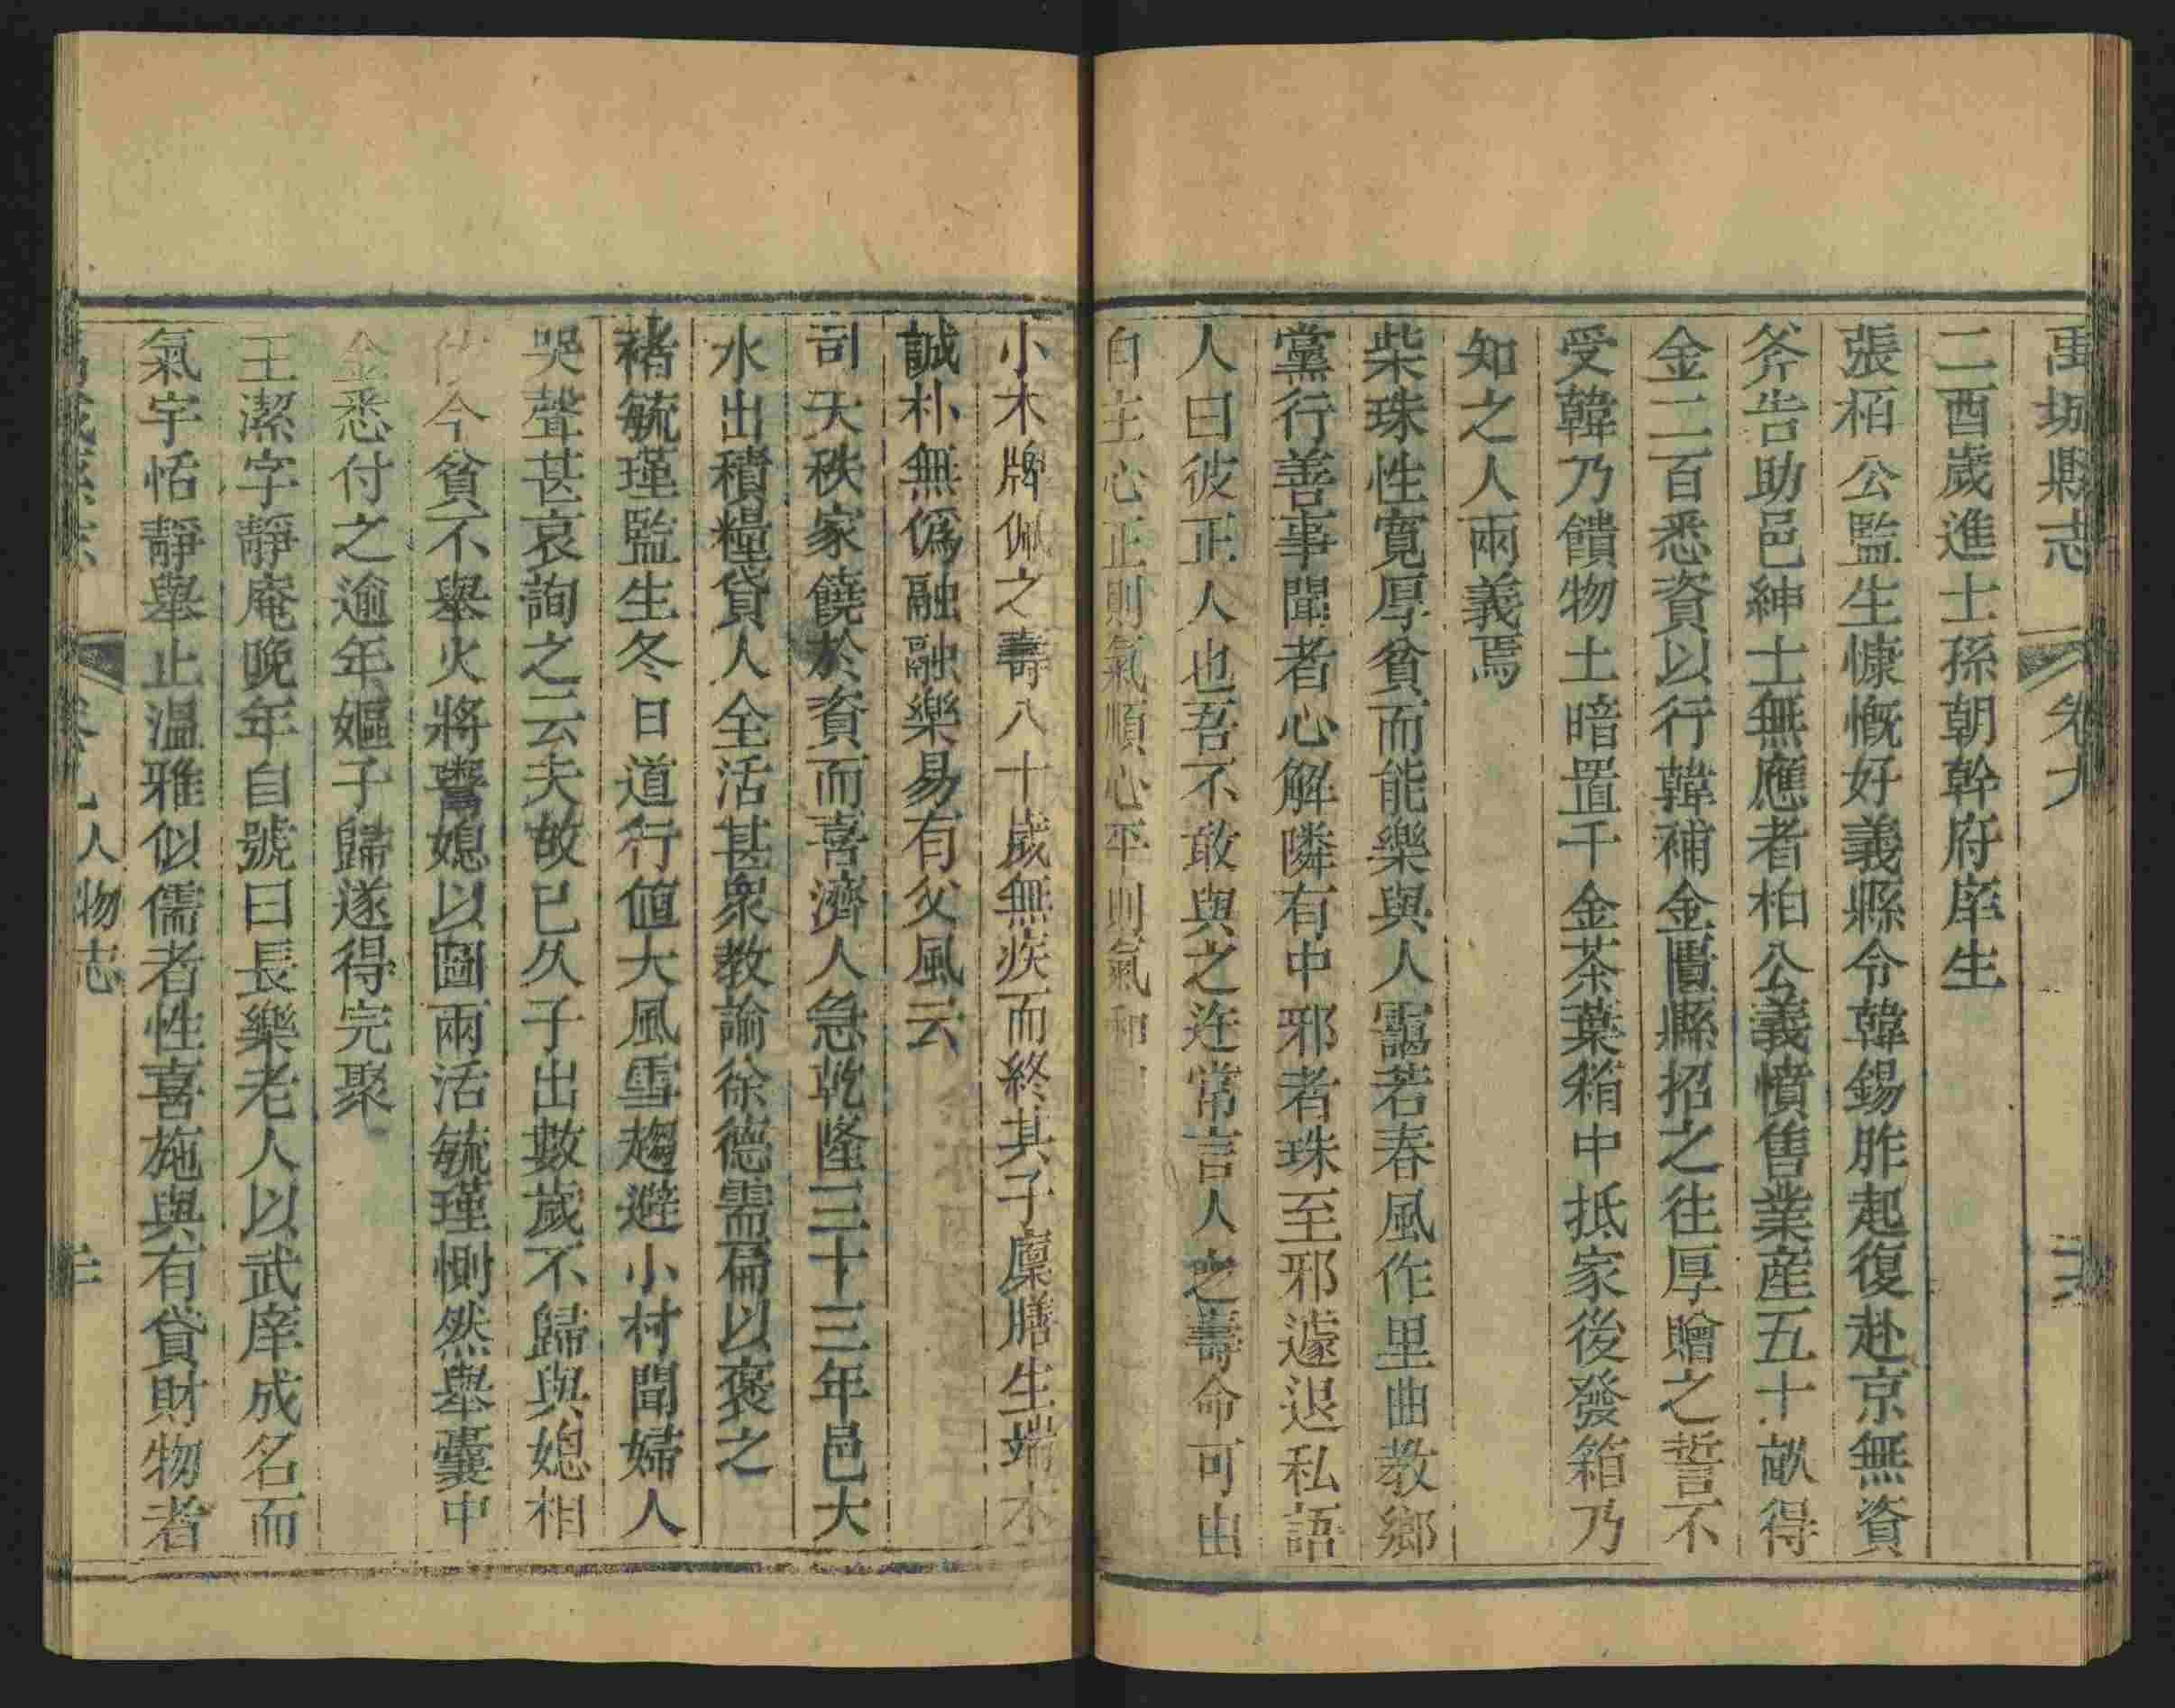 禹城縣志 卷九
二酉歲進士孫朝幹府庠生
張栢公監生慷慨好義縣令韓錫胙起復赴京無資
斧告助邑紳士無應者栢公義憤售業産五十畝得
金二百悉資以行韓補金匱縣招之往厚贈之誓不
受韓乃饋物土暗置千金茶葉箱中抵家後發箱乃
知之人兩義焉
柴珠性寛厚貧而能樂與人靄若春風作里曲教鄉
黨行善事聞者心解隣有中邪者珠至邪遽退私語
人曰彼正人也吾不敢與之迕常言人之壽命可由
自主心正則氣順心平則氣和
小木牌佩之壽八十歲無疾而終其子廩膳生端木
誠朴無偽融融樂易有父風云
司天秩家饒於資而喜濟人急乾隆三十三年邑大
水出積糧貸人全活甚衆教諭徐德需扁以褒之
褚毓瑾監生冬日道行値大風雪趨避小村聞婦人
哭聲甚哀詢之云夫故已久子出數歲不歸與媳相
依今貧不舉火將鬻媳以圖兩活毓瑾惻然舉囊中
金悉付之逾年嫗子歸遂得完聚
王潔字靜庵晩年自號曰長樂老人以武庠成名而
氣宇恬靜舉止温雅似儒者性喜施與有貸財物者
人物志